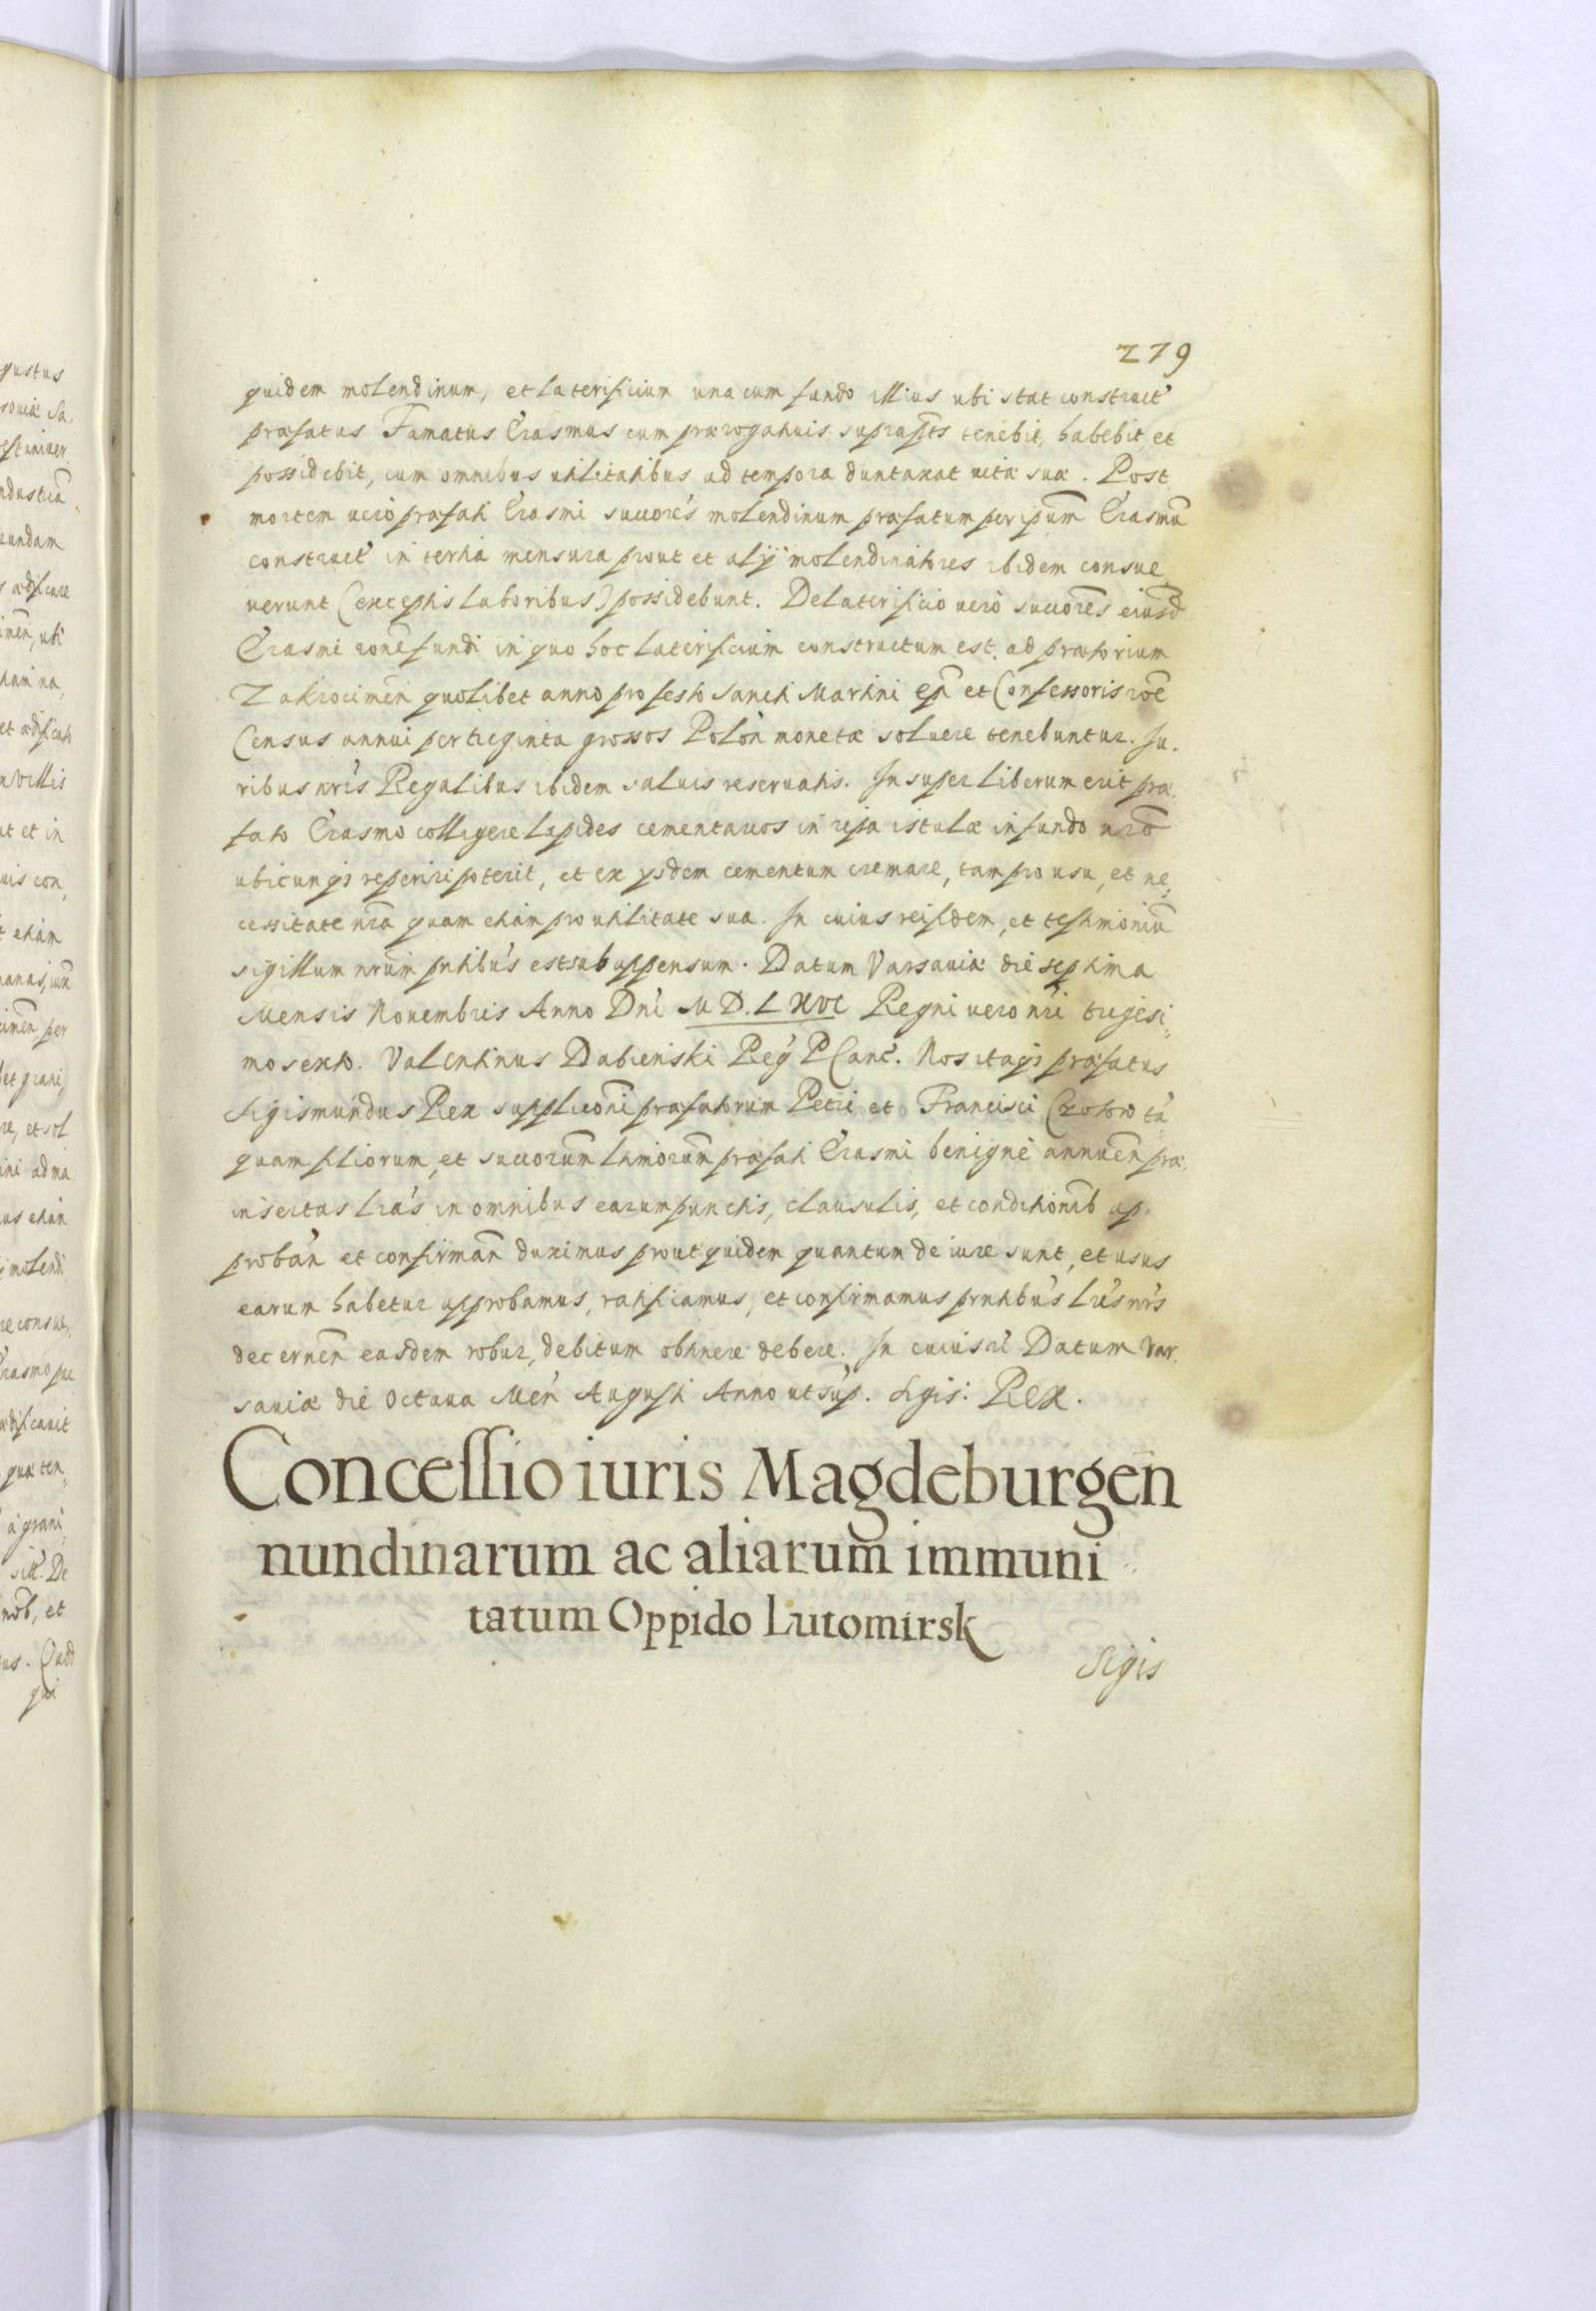 279
quidem molendinum, et laterificium una cum fundo illius ubi stat construct̃
præfatus Famatus Erasmus cum prærogatiuis suprasc̃ts tenebit, habebit, et
possidebit, cum omnibus utilitatibus ad tempora duntaxat uitæ suæ. Post
mortem uero præfati Erasmi succores̃ molendinum præfatum per ip̃um Erasmũ
construct̃ in tertia mensura prout et alij molendinatores ibidem consue
uerunt (exceptis laboribus) possidebunt. De laterificio uerò succores̃ eiusd̃
Erasmi rone̅ fundi in quo hoc laterificium constructum est, ad prætorium
Zakrocimen̅ quolibet anno pro festo Sancti Martini Ep̃i et Confessoris rõe
Census annui per triginta grossos Polon̅ monetæ soluere tenebuntur. Iu.
ribus nr̃is Regalibus ibidem saluis reseruatis. Insuper liberum erit præ.
fato Erasmo colligere lapides cementarios in ripa istulæ in fundo nr̃o
ubicunq3 reperiri poterit, et ex ysdem cementum cremare, tam pro usu, et ne,
cessitate nr̃a quam etiam pro utilitate sua. In cuius rei fidem, et testimoniũ
sigillum nr̃um pñtibus est subappensum. Datum Varsauiæ die septima
Mensis Nouembris Anno Dn̅i M D. LXVI Regni uero nr̃i trigesi,
mo sexto. Valentinus Dabieński Reg̃ P Canc̃. Nos itaq3 præfatus
Sigismundus Rex supplicõni præfatorum Petri et Francisci tã
quam filiorum, et succorum̃ ltimorum̃ præfati Erasmi benigne annuen̅ præ.
insertas lr̃as in omnibus earum punctis, clausulis, et conditionib ap.
proban̅ et confirman̅ duximus prout quidem quantum de iure sunt, et usus
earum habetur approbamus, ratificamus, et confirmamus prñtibus lr̃is nr̃is
decernen̅ easdem robur, debitum obtinere debere. In cuius rĩ Datum Var.
sauiæ die Octaua Men̅ Augusti Anno ut sup̃. Sigis: Rex.
Concessio iuris Magdeburgen̅
nundinarum ac aliarum̅ immuni
tatum Oppido Lutomirsk
Sigis